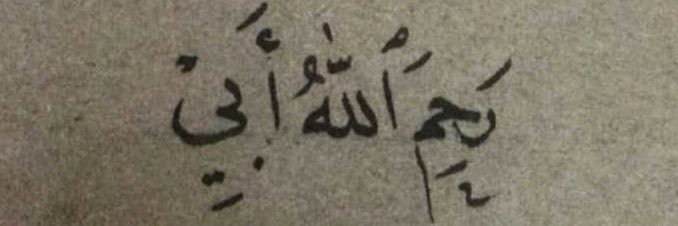 رَحِمَ ٱللَّهُ أَبِيْ